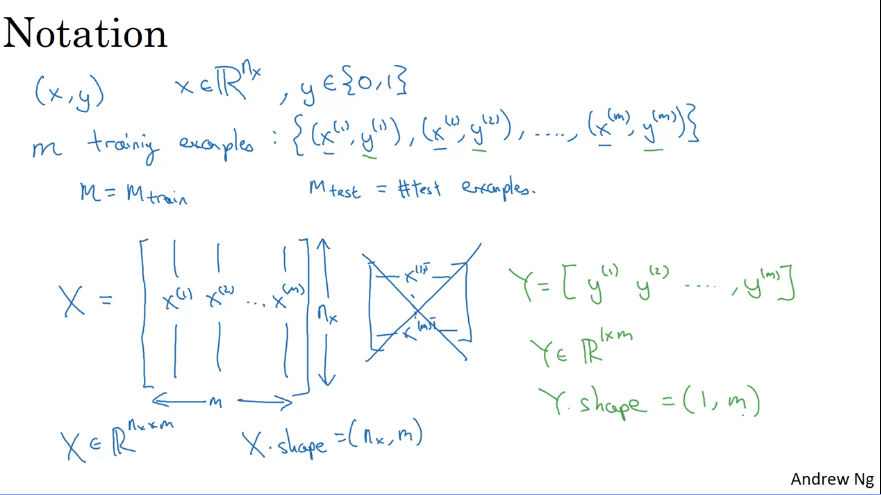 Notation
(x, y) x ∈ ℝ^{n_x}, y ∈ {0, 1}
m training examples : {(x^{(1)}, y^{(1)}), (x^{(2)}, y^{(2)}), ...., (x^{(m)}, y^{(m)})}
M = M_{train} M_{test} = #test examples.
X = [ x^{(1)} x^{(2)} ... x^{(m)} ] n_x
m
x^{(1)T}
⋮
x^{(m)T}
Y = [ y^{(1)} y^{(2)} .... , y^{(m)} ]
Y ∈ ℝ^{1×m}
Y.shape = (1, m)
X ∈ ℝ^{n_x × m} X.shape = (n_x, m)
Andrew Ng